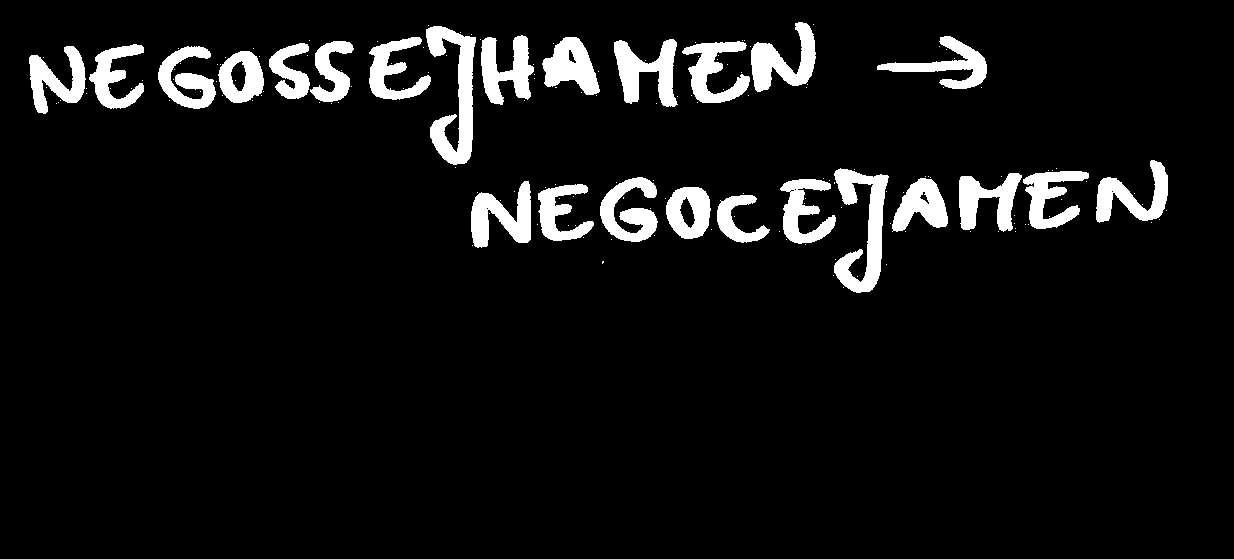 NEGOSSEJHAMEN →
NEGOCEJAMEN